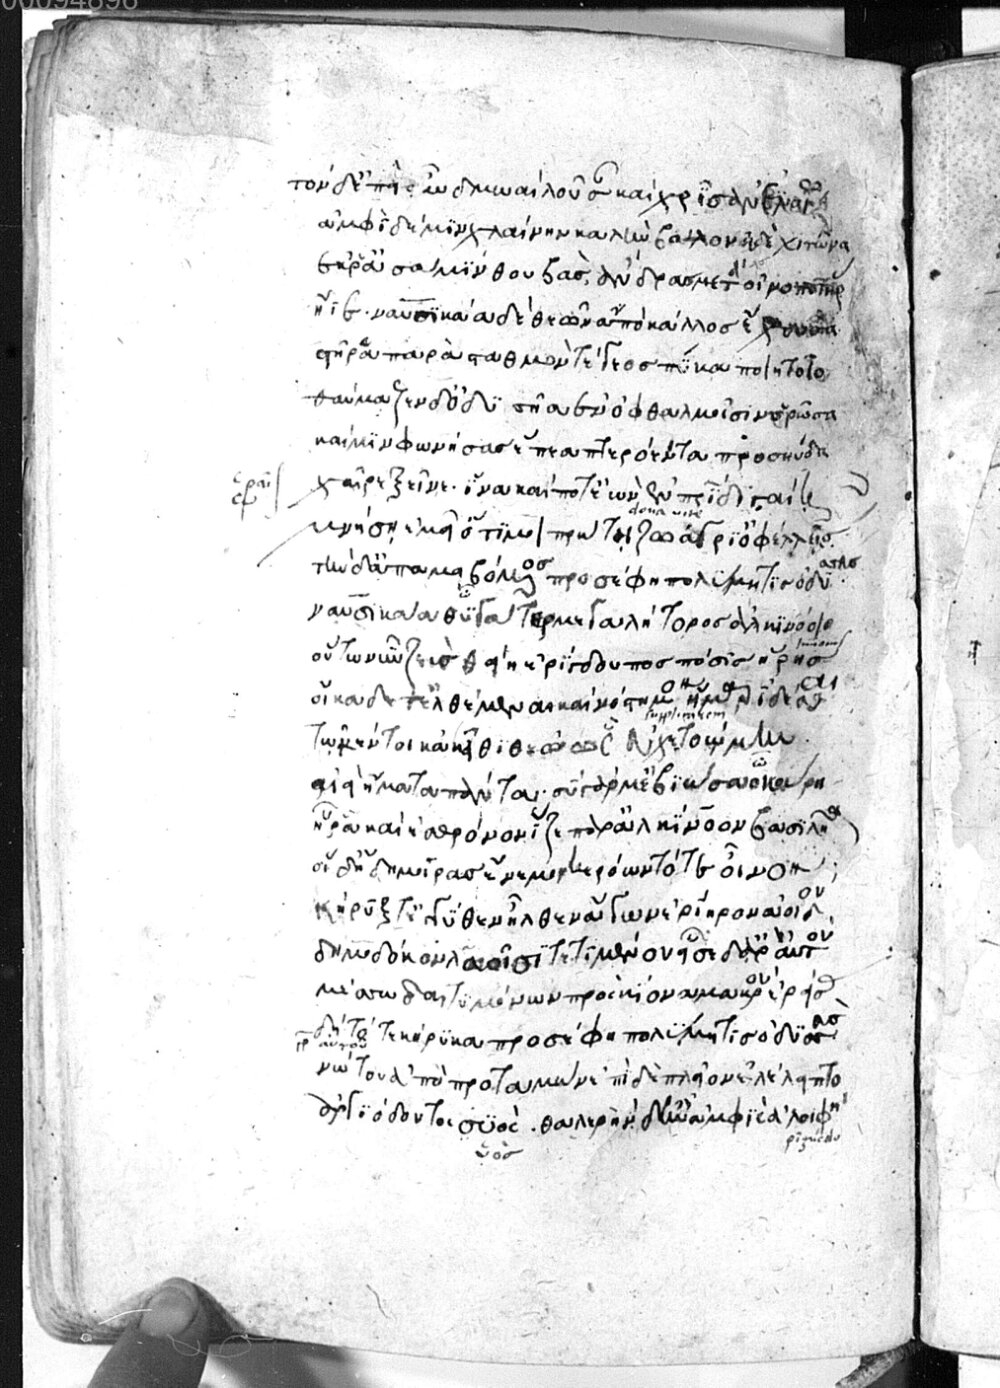 τόνδ' ἐπεὶ οὖν δμωαὶ λοῦσαν καὶ χρῖσαν ἐλαίω
ἀμφὶ δέ μιν χλαίνην καλὴν βάλον ἠδὲ χιτῶνα
ἔκ ῥ' ἀσαμίνθου βὰς, ἄνδρας μέτα οἰνοποτῆρ
ἤϊε. ναυσικάα δὲ θεῶν ἄπο κάλλος ἔχουσα
στῆ ῥα παρὰ σταθμὸν τέγεος πύκα ποιητοῖο
θαύμαζεν δ' ὀδυσῆα ἐν ὀφθαλμοῖσιν ὁρῶσα
καί μιν φωνήσασ' ἔπεα πτερόεντα προσηύδα
χαῖρε ξεῖνε. ἵνα καί ποτ' ἐὼν ἐν πατρίδι γαίη
μνήση ἐμεῦ ὅτι μοι πρώτη ζωάγρι' ὀφέλλεις
τὴν δ' ἀπαμειβόμενος προσέφη πολύμητις ὀδυ
ναυσικάα θύγατερ μεγαλήτορος ἀλκινόοιο
οὕτω νῦν ζεὺς θείη ἐρίγδουπος πόσις ἥρης
οἴκαδέ τ' ἐλθέμεναι καὶ νόστιμον ἦμαρ ἰδέσθαι
supplicarem
τῶ κέν τοι κἀκεῖθι θεῶ ὣς εὐχετοώμην.
αἰεὶ ἤματα πάντα. σὺ γάρ μ' ἐβιώσαο κούρη
ἦ ῥα καὶ ἐς θρόνον ἷζε παρ' ἀλκίνοον βασιλῆα
οἱ δ' ἤδη μοίρας ἔνεμον κερόωντό τε οἶνον
κῆρυξ δ' ἐγγύθεν ἦλθεν ἄγων ἐρίηρον ἀοιδόν
δημόδοκον λαοῖσι τετιμένον εἷσε δ' ἄρ' αὐτόν
μέσσω δαιτυμόνων πρὸς κίονα μακρὸν ἐρείσας
δὴ τότε κήρυκα προσέφη πολύμητις ὀδυσσεὺς
νώτου ἀποπροταμὼν ἐπὶ δὲ πλεῖον ἐλέλειπτο
ἀργιόδοντος συὸς. θαλερὴ δ' ἦν ἀμφὶς ἀλοιφή
ὑὸς